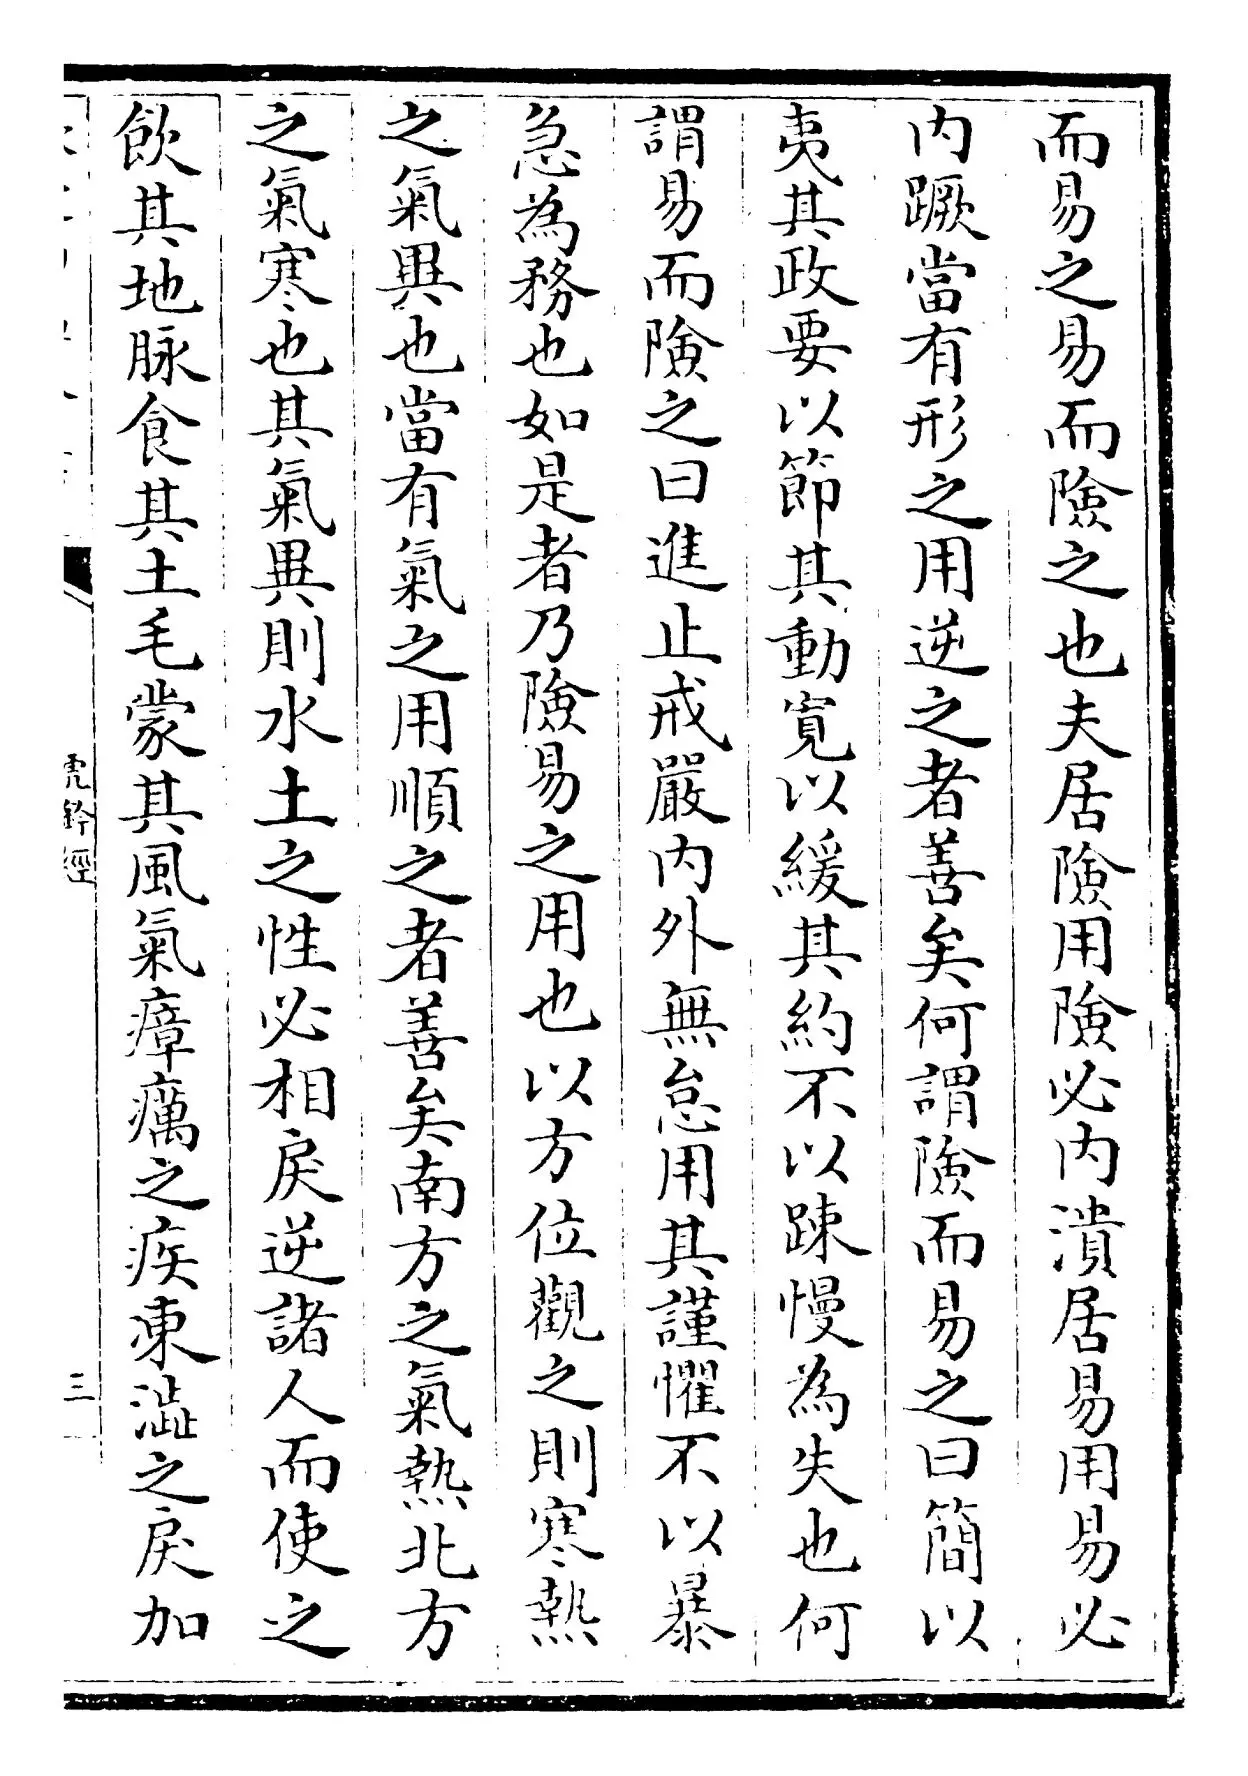 而易之易而險之也夫居險用險必内潰居易用易必
内蹶當有形之用逆之者善矣何謂險而易之曰簡以
夷其政要以節其動寬以緩其約不以踈慢為失也何
謂易而險之曰進止戒嚴内外無怠用其謹懼不以暴
急為務也如是者乃險易之用也以方位觀之則寒熱
之氣異也當有氣之用順之者善矣南方之氣熱北方
之氣寒也其氣異則水土之性必相戾逆諸人而使之
飲其地脉食其土毛蒙其風氣瘴癘之疾凍澁之戾加
虎鈐經
三